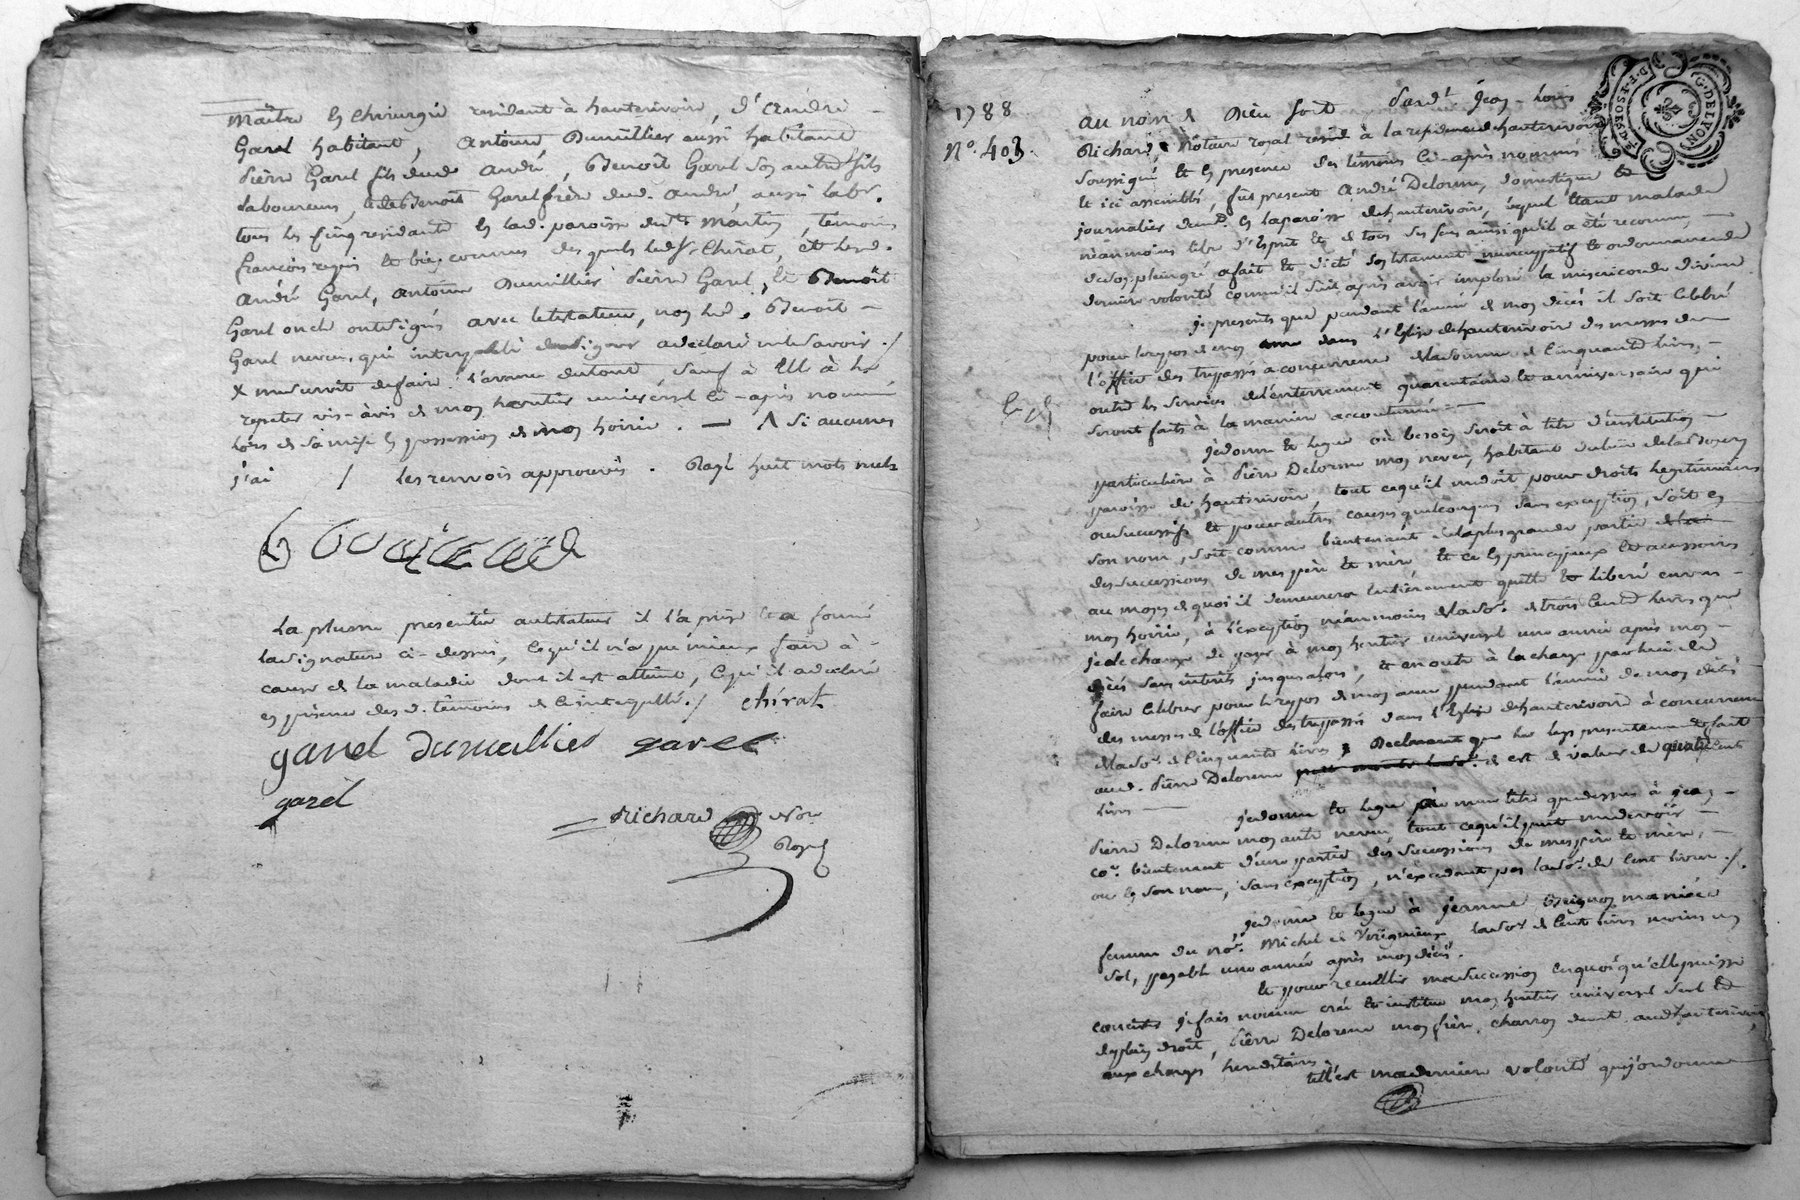 Maître en chirurgie residant à hauterivoire, d'André
Garel habitant, Antoine Dumillier aussi habitant
Pierre Garel fils dud. André, Benoit Garel son autre fils
laboureurs, Benoit Garel frère dud. André, aussi labr.
tous les cinq residants en lad. paroisse de St. Martin, temoins
requis et bien connus des quels led. Sr. Chirat, et lesd.
André Garel, Antoine Dumillier Pierre Garel, et Benoit
Garel oncle ont signés avec le testateur, non led. Benoit
Garel neveu qui interpellé de signer a declaré ne le savoir ./
faire l'avance du tout, sauf à elle à le
repeter vis-à-vis de mon heritier universel ci-après nommé
lors de sa mise en possession de mon hoirie. — Λ Si aucunes
j'ai / les renvois approuvés. Rayé huit mots nuls
La plume presentée au testateur il l'a prise et a formé
la signature ci-dessus, ce qu'il n'a pu mieux faire à
cause de la maladie dont il est atteint, ce qu'il a declaré
en présence des d. témoins de ce interpellé ./ chirat
garel dumillier garel
garel
Richard Nore
Royal
1788
N°. 403.
au nom de Dieu soit Pardt. Jean-Louis
Richard, Notaire royal reservé à la residence d'hauterivoire
soussigné et en presence des temoins ci-après nommés
et ici assemblés, fut present André Delorme, domestique et
journalier demt. en la paroisse d'hauterivoire, lequel étant malade
néanmoins libre d'esprit et de tous ses sens ainsi qu'il a été reconnu,
de son plein gré a fait et dicté son testament nuncupatif et ordonnance de
derniere volonté comme il suit après avoir imploré la misericorde divine
je prescris que pendant l'année de mon décès il soit celebré
pour le repos de mon ame dans l'Eglise d'hauterivoire des messes de
l'office des trepassés à concurrence de la somme de cinquante livres,
outre les services de l'enterrement quarantaine et anniversaire qui
seront faits à la maniere accoutumée
je donne et legue où besoin seroit à titre d'institution
particulière à Pierre Delorme mon neveu, habitant au lieu de
paroisse de hauterivoire, tout ce qu'il me doit pour droits legitimaires
ou successifs et pour autres causes quelconques sans exception, soit en
son nom, soit comme bientenant de la plus grande partie
des successions de mes père et mère, et ce en principaux et accessoires
au moyen de quoi il demeurera entièrement quitte et liberé envers
mon hoirie, à l'exception néanmoins de la soe. de trois cents livres que
je le charge de payer à mon heritier universel une année après mon
décès sans interets jusqu'alors, et en outre à la charge par lui de
faire celebrer pour le repos de mon ame pendant l'année de mon décès
des messes de l'office des trepassés dans l'Eglise d'hauterivoire à concurrence
de la soe. de cinquante livres, Declarant que le legs presentement fait
aud. Pierre Delorme est de valeur de quatre cent
livres
je donne et legue par même titre que dessus à Jean
Pierre Delorme mon autre neveu tout ce qu'il peut me devoir
coe. bientenant d'une partie des successions de mes père et mère,
ou en son nom, sans exception, n'excedant pas la soe. de cent livres ./.
je donne et legue à Jeanne
femme du no. Michel la soe. de cent livres moins un
sol, payable une année après mon décès.
Et pour recueillir ma succession en quoi qu'elle puisse
consister je fais nomme crée et institue mon heritier universel seul et
de plein droit, Pierre Delorme mon frère, charron demt. aud. hauterivoire,
aux charges hereditaires
telle est ma derniere volonté que j'ordonne
G. DE LYON